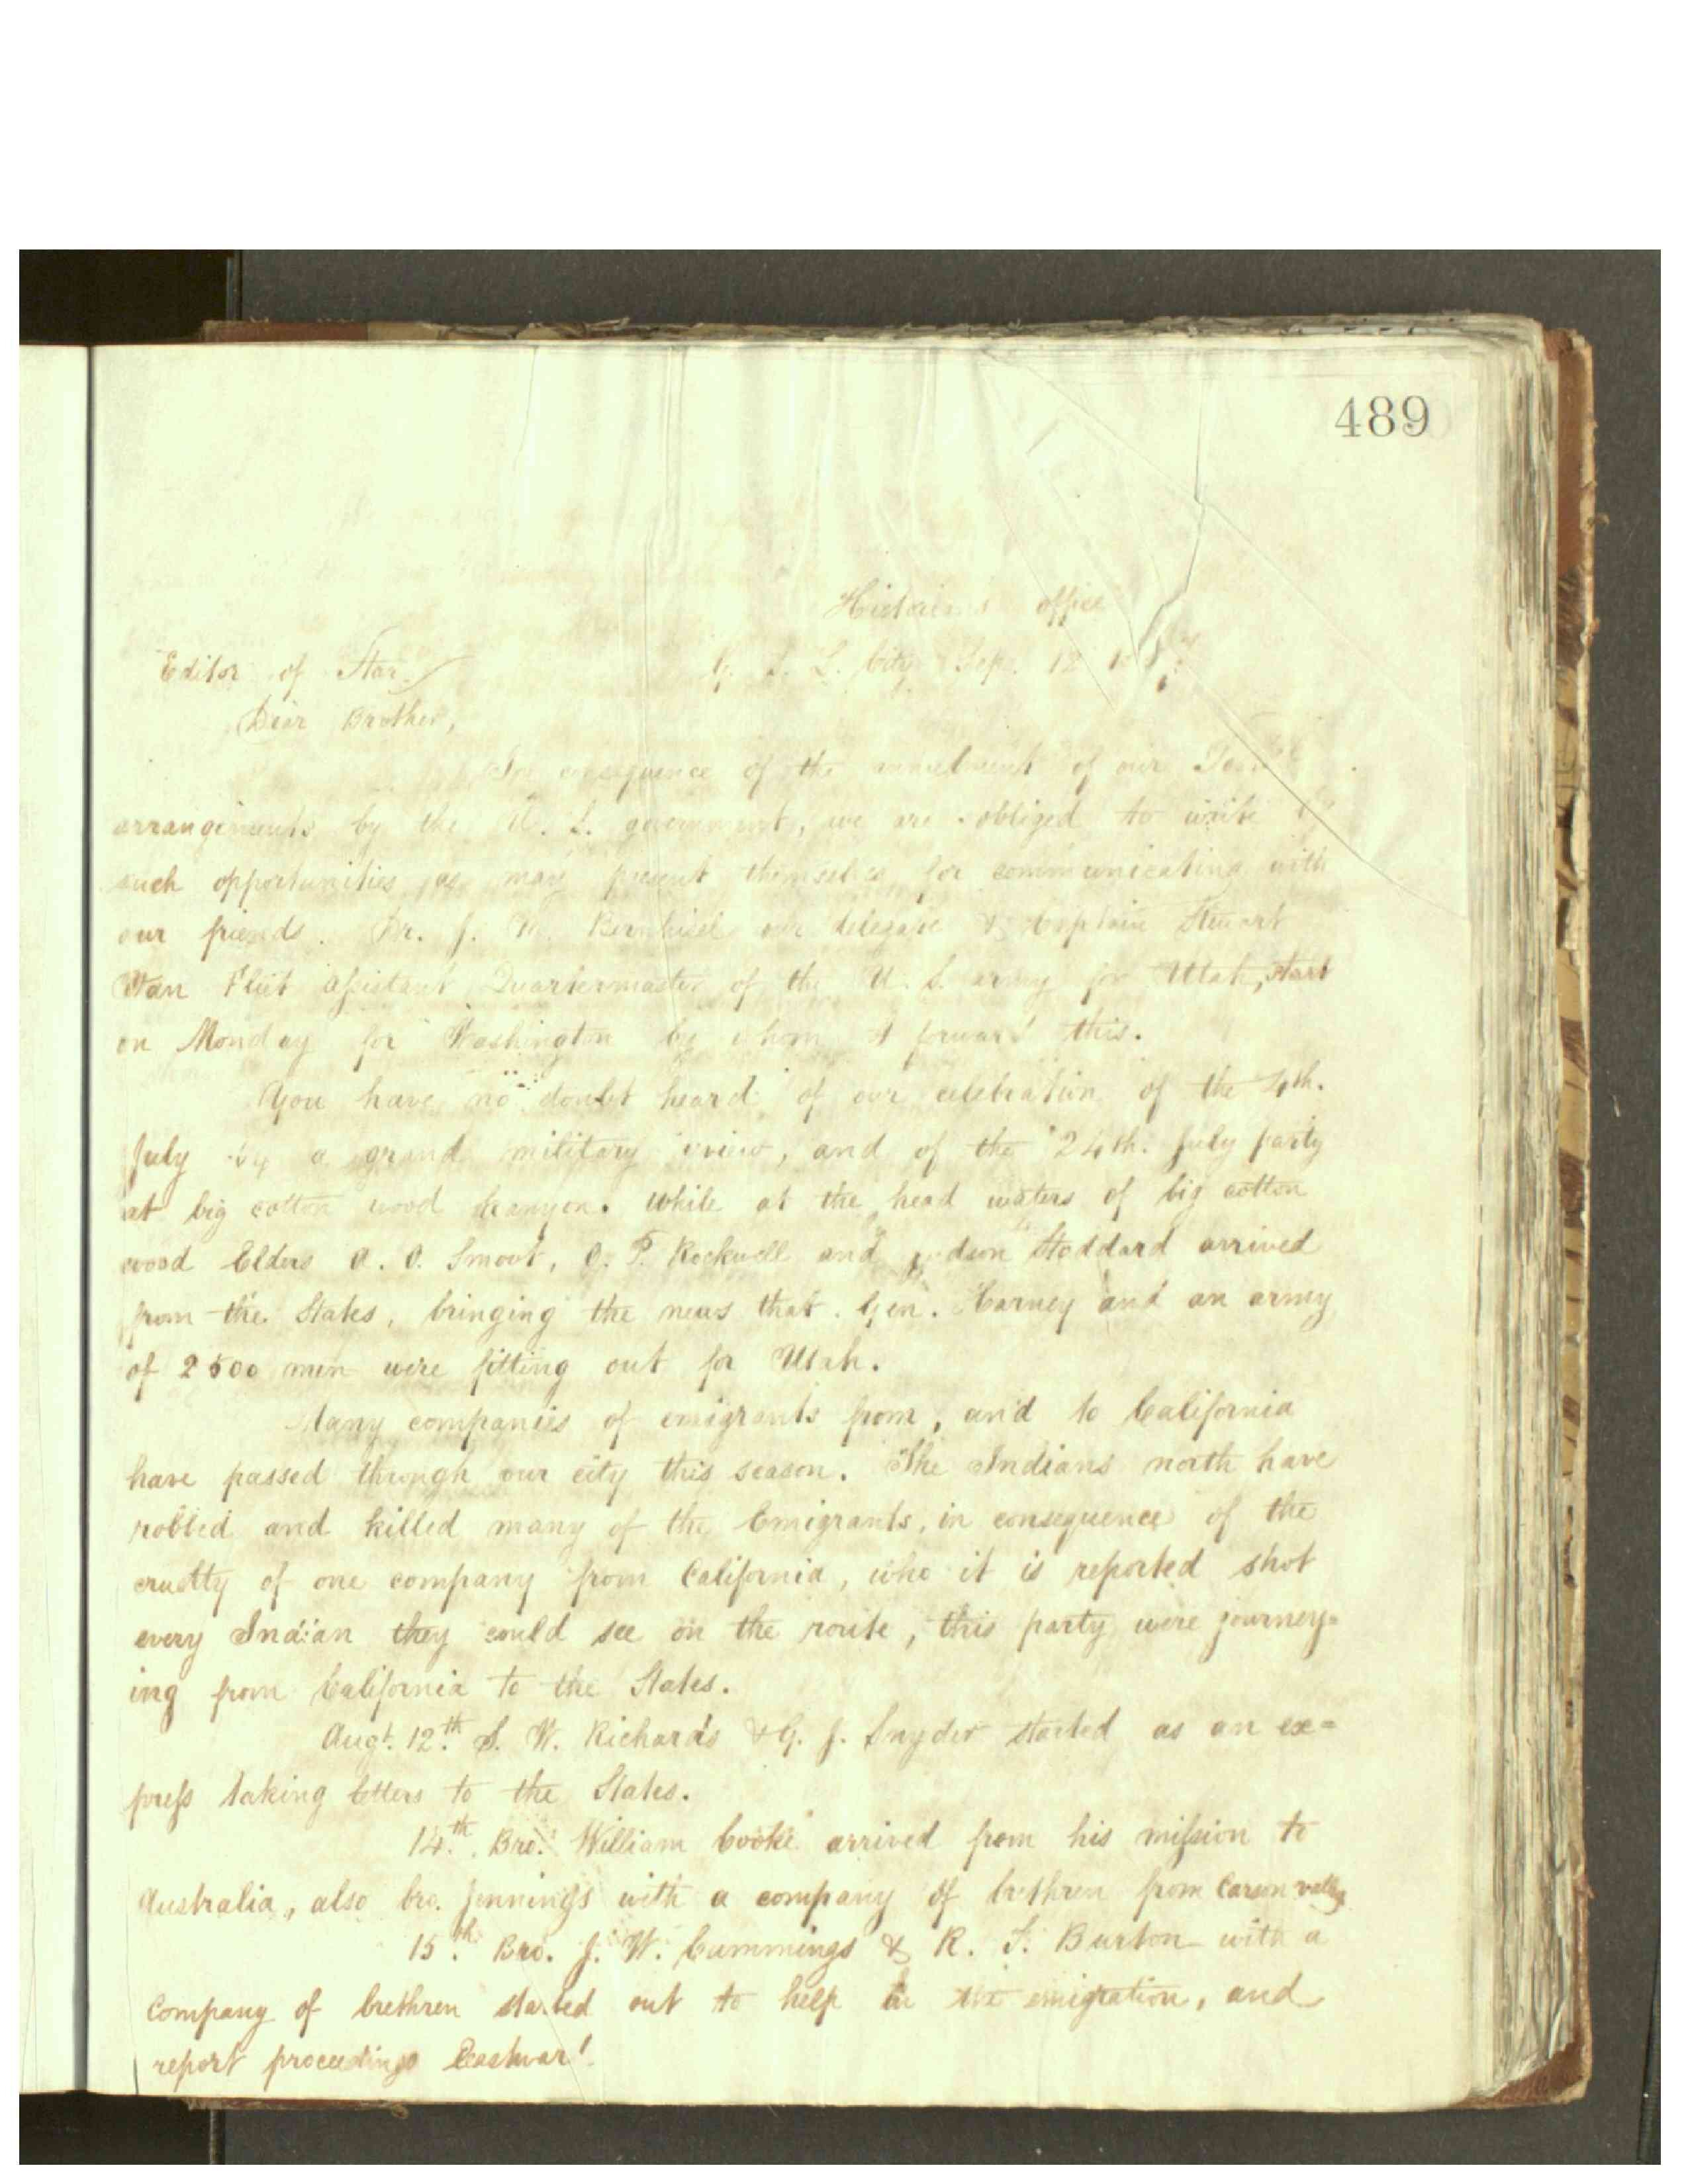 489
Historian's office
G. S. L. City Sep. 12
Editor of Star.
Dear Brother,
In consequence of the annulment of our
arrangements by the U. S. government, we are obliged to write by
such opportunities as may present themselves for communicating with
our friends. Dr. J. M. Bernhisel our delegate & Captain Stewart
Van Fliet assistant Quartermaster of the U. S. army for Utah, start
on Monday for Washington by whom I forward this.
You have no doubt heard of our celebration of the 4th.
July by a grand military review, and of the 24th. July party
at big cotton wood kanyon. While at the head waters of big cotton
wood Elders A. O. Smoot, O. P. Rockwell and Judson Stoddard arrived
from the States, bringing the news that Gen. Harney and an army
of 2500 men were fitting out for Utah.
Many companies of emigrants from, and to California
have passed through our city this season. The Indians north have
robbed and killed many of the Emigrants, in consequence of the
cruelty of one company from California, who it is reported shot
every Indian they could see on the route, this party were journey=
ing from California to the States.
Augt. 12th. S. W. Richards & G. J. Snyder started as an ex=
press taking letters to the States.
14th. Bro. William Cooke arrived from his mission to
Australia, also bro. Jennings with a company of brethren from Carson valley
15th. Bro. J. W. Cummings & R. T. Burton with a
Company of brethren started out to help in the emigration, and
report proceedings Eastward.